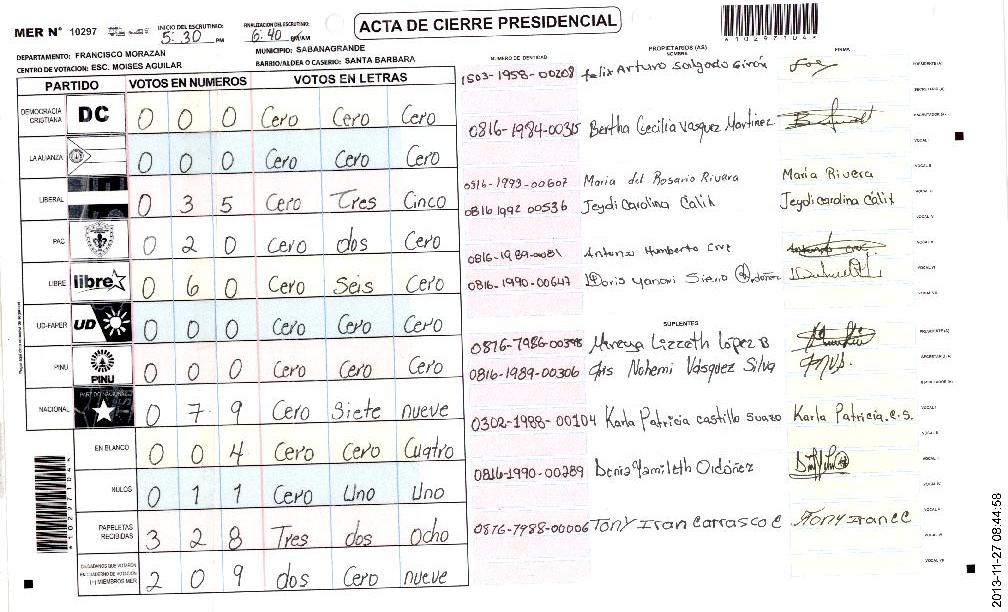 MER Nº 10297
INICIO DEL ESCRUTINIO: 5:30 PM
FINALIZACIÓN DEL ESCRUTINIO: 6:40
ACTA DE CIERRE PRESIDENCIAL
*10297104*
DEPARTAMENTO: FRANCISCO MORAZAN
MUNICIPIO: SABANAGRANDE
CENTRO DE VOTACION: ESC. MOISES AGUILAR
BARRIO/ALDEA O CASERIO: SANTA BARBARA
PARTIDO VOTOS EN NUMEROS VOTOS EN LETRAS
DEMOCRACIA CRISTIANA DC 0 0 0 Cero Cero Cero
LA ALIANZA 0 0 0 Cero Cero Cero
LIBERAL 0 3 5 Cero Tres Cinco
PAC 0 2 0 Cero dos Cero
LIBRE libre 0 6 0 Cero Seis Cero
UD-FAPER UD 0 0 0 Cero Cero Cero
PINU PINU 0 0 0 Cero Cero Cero
NACIONAL 0 7 9 Cero Siete nueve
EN BLANCO 0 0 4 Cero Cero Cuatro
NULOS 0 1 1 Cero Uno Uno
PAPELETAS RECIBIDAS 3 2 8 Tres dos Ocho
CIUDADANOS QUE VOTARON EN CUADERNO DE VOTACION (+) MIEMBROS MER 2 0 9 dos Cero nueve
*10297104*
NUMERO DE IDENTIDAD PROPIETARIOS (AS) NOMBRE FIRMA
1503-1958-00208 Felix Arturo Salgado Girón PRESIDENTE (A)
SECRETARIO (A)
0816-1984-00315 Bertha Cecilia Vasquez Martinez ESCRUTADOR (A)
VOCAL I
0816-1993-00607 Maria del Rosario Rivara Maria Rivera VOCAL II
0816 1992 00536 Jeydi Carolina Cálix Jeydi Carolina Cálix
VOCAL IV
0816-1989-0081 Antonio Humberto Cruz
0816-1990-00647 Doris Yanori VOCAL VI
VOCAL VII
SUPLENTES
0876-7986-00398 Mireya Lizzeth López B PRESIDENTE (A)
0816-1989-00306 Nohemi Vásquez Silva SECRETARIO (A)
ESCRUTADOR (A)
0302-1988-00104 Karla Patricia Castillo Suazo Karla Patricia.C.S. VOCAL I
VOCAL II
0816-1990-00289 Denia Yamileth Ordóñez VOCAL III
VOCAL IV
VOCAL V
0876-7988-00006 Tony Iran Carrasco C Tony Iran C
VOCAL VI
VOCAL VII
2013-11-27 08:44:58